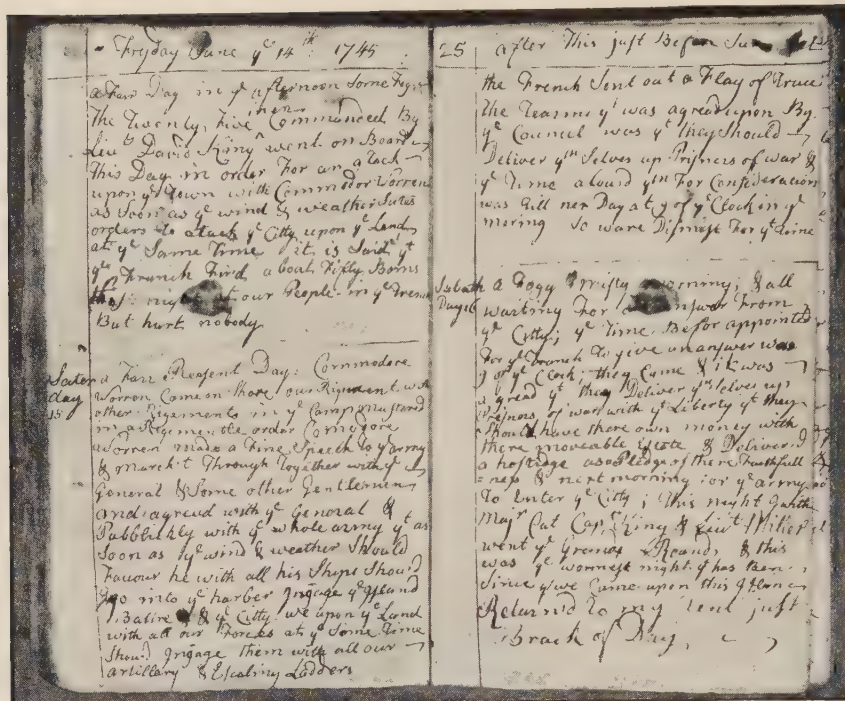 Fryday June ye 14th 1745
a Fair Day in ye afternoon Some
men
The Twenty, Five Commanced By
Liut David King went on Board
This Day in order For an atack
upon ye Town with Commodor Worren
as Soon as ye wind & weather Sutes
orders to atack ye Citty upon ye Land
at ye Same Time it is Said yt
ye Franch Fird about Fifty Boms
this night at our People in ye
But hurt nobody
Sater
day
15
a Fair Pleasent Day: Commodore
Worron Came on Shore our Rigement with
other Rigements in ye Camp mustered
in a Regimentle order Comodore
Worren made a Fine Speech to ye army
& march't Through Together with ye
General & Some other Gentlemen
and agreed with ye General &
Pubblikly with ye whole army yt as
Soon as ye wind & weather Should
Favour he with all his Ships Should
Goo into ye harber Ingage ye Island
Batire & ye Citty we upon ye Land
with all our Forces at ye Same Time
Shoud Ingage them with all our
artillary & Escaling Ladders
25
after This just Before Sun
the French Sent out a Flag of Truce
the Tearms yt was agread upon By
ye Council was yt they Should
Deliver ym Selves up Prisners of war &
ye Time alowd ym For Consideration
was till nex Day at 9 of ye Clock in ye
morning So ware Dismist For yt time
Sabath
Day 16
a Fogg & misty morning; & all
waiting For answer From
ye Citty; ye Time Before appointed
For ye French to give an answer was
9 of ye Clock; they Came & it was
agread yt they Deliver ym Selves up
Prisners of war with ye Liberty yt they
Should have there own money with
there moveable Estate & Deliverd
a hostidge as a Pledge of there Faithfull
=ness & next morning for ye army
To Enter ye Citty; This night
Majr Cut Capt King & Liut
went ye Grand Rounds & this
was ye night yt has been
Since we Came upon this Island
Returnd to my Tent just
Brack of Day,